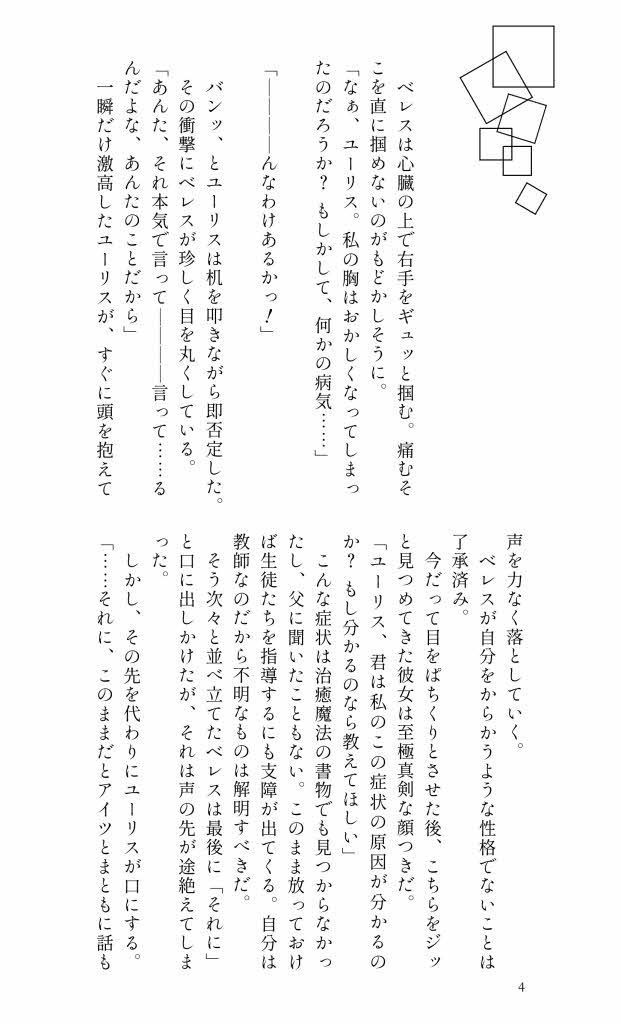 ベレスは心臓の上で右手をギュッと掴む。痛むそ
こを直に掴めないのがもどかしそうに。
「なぁ、ユーリス。私の胸はおかしくなってしまっ
たのだろうか？ もしかして、何かの病気……」
「――――んなわけあるかっ！」
　バンッ、とユーリスは机を叩きながら即否定した。
　その衝撃にベレスが珍しく目を丸くしている。
「あんた、それ本気で言って――――言って……る
んだよな、あんたのことだから」
　一瞬だけ激高したユーリスが、すぐに頭を抱えて
声を力なく落としていく。
　ベレスが自分をからかうような性格でないことは
了承済み。
　今だって目をぱちくりとさせた後、こちらをジッ
と見つめてきた彼女は至極真剣な顔つきだ。
「ユーリス、君は私のこの症状の原因が分かるの
か？ もし分かるのなら教えてほしい」
　こんな症状は治癒魔法の書物でも見つからなかっ
たし、父に聞いたこともない。このまま放っておけ
ば生徒たちを指導するにも支障が出てくる。自分は
教師なのだから不明なものは解明すべきだ。
　そう次々と並べ立てたベレスは最後に「それに」
と口に出しかけたが、それは声の先が途絶えてしま
った。
　しかし、その先を代わりにユーリスが口にする。
「……それに、このままだとアイツとまともに話も
4